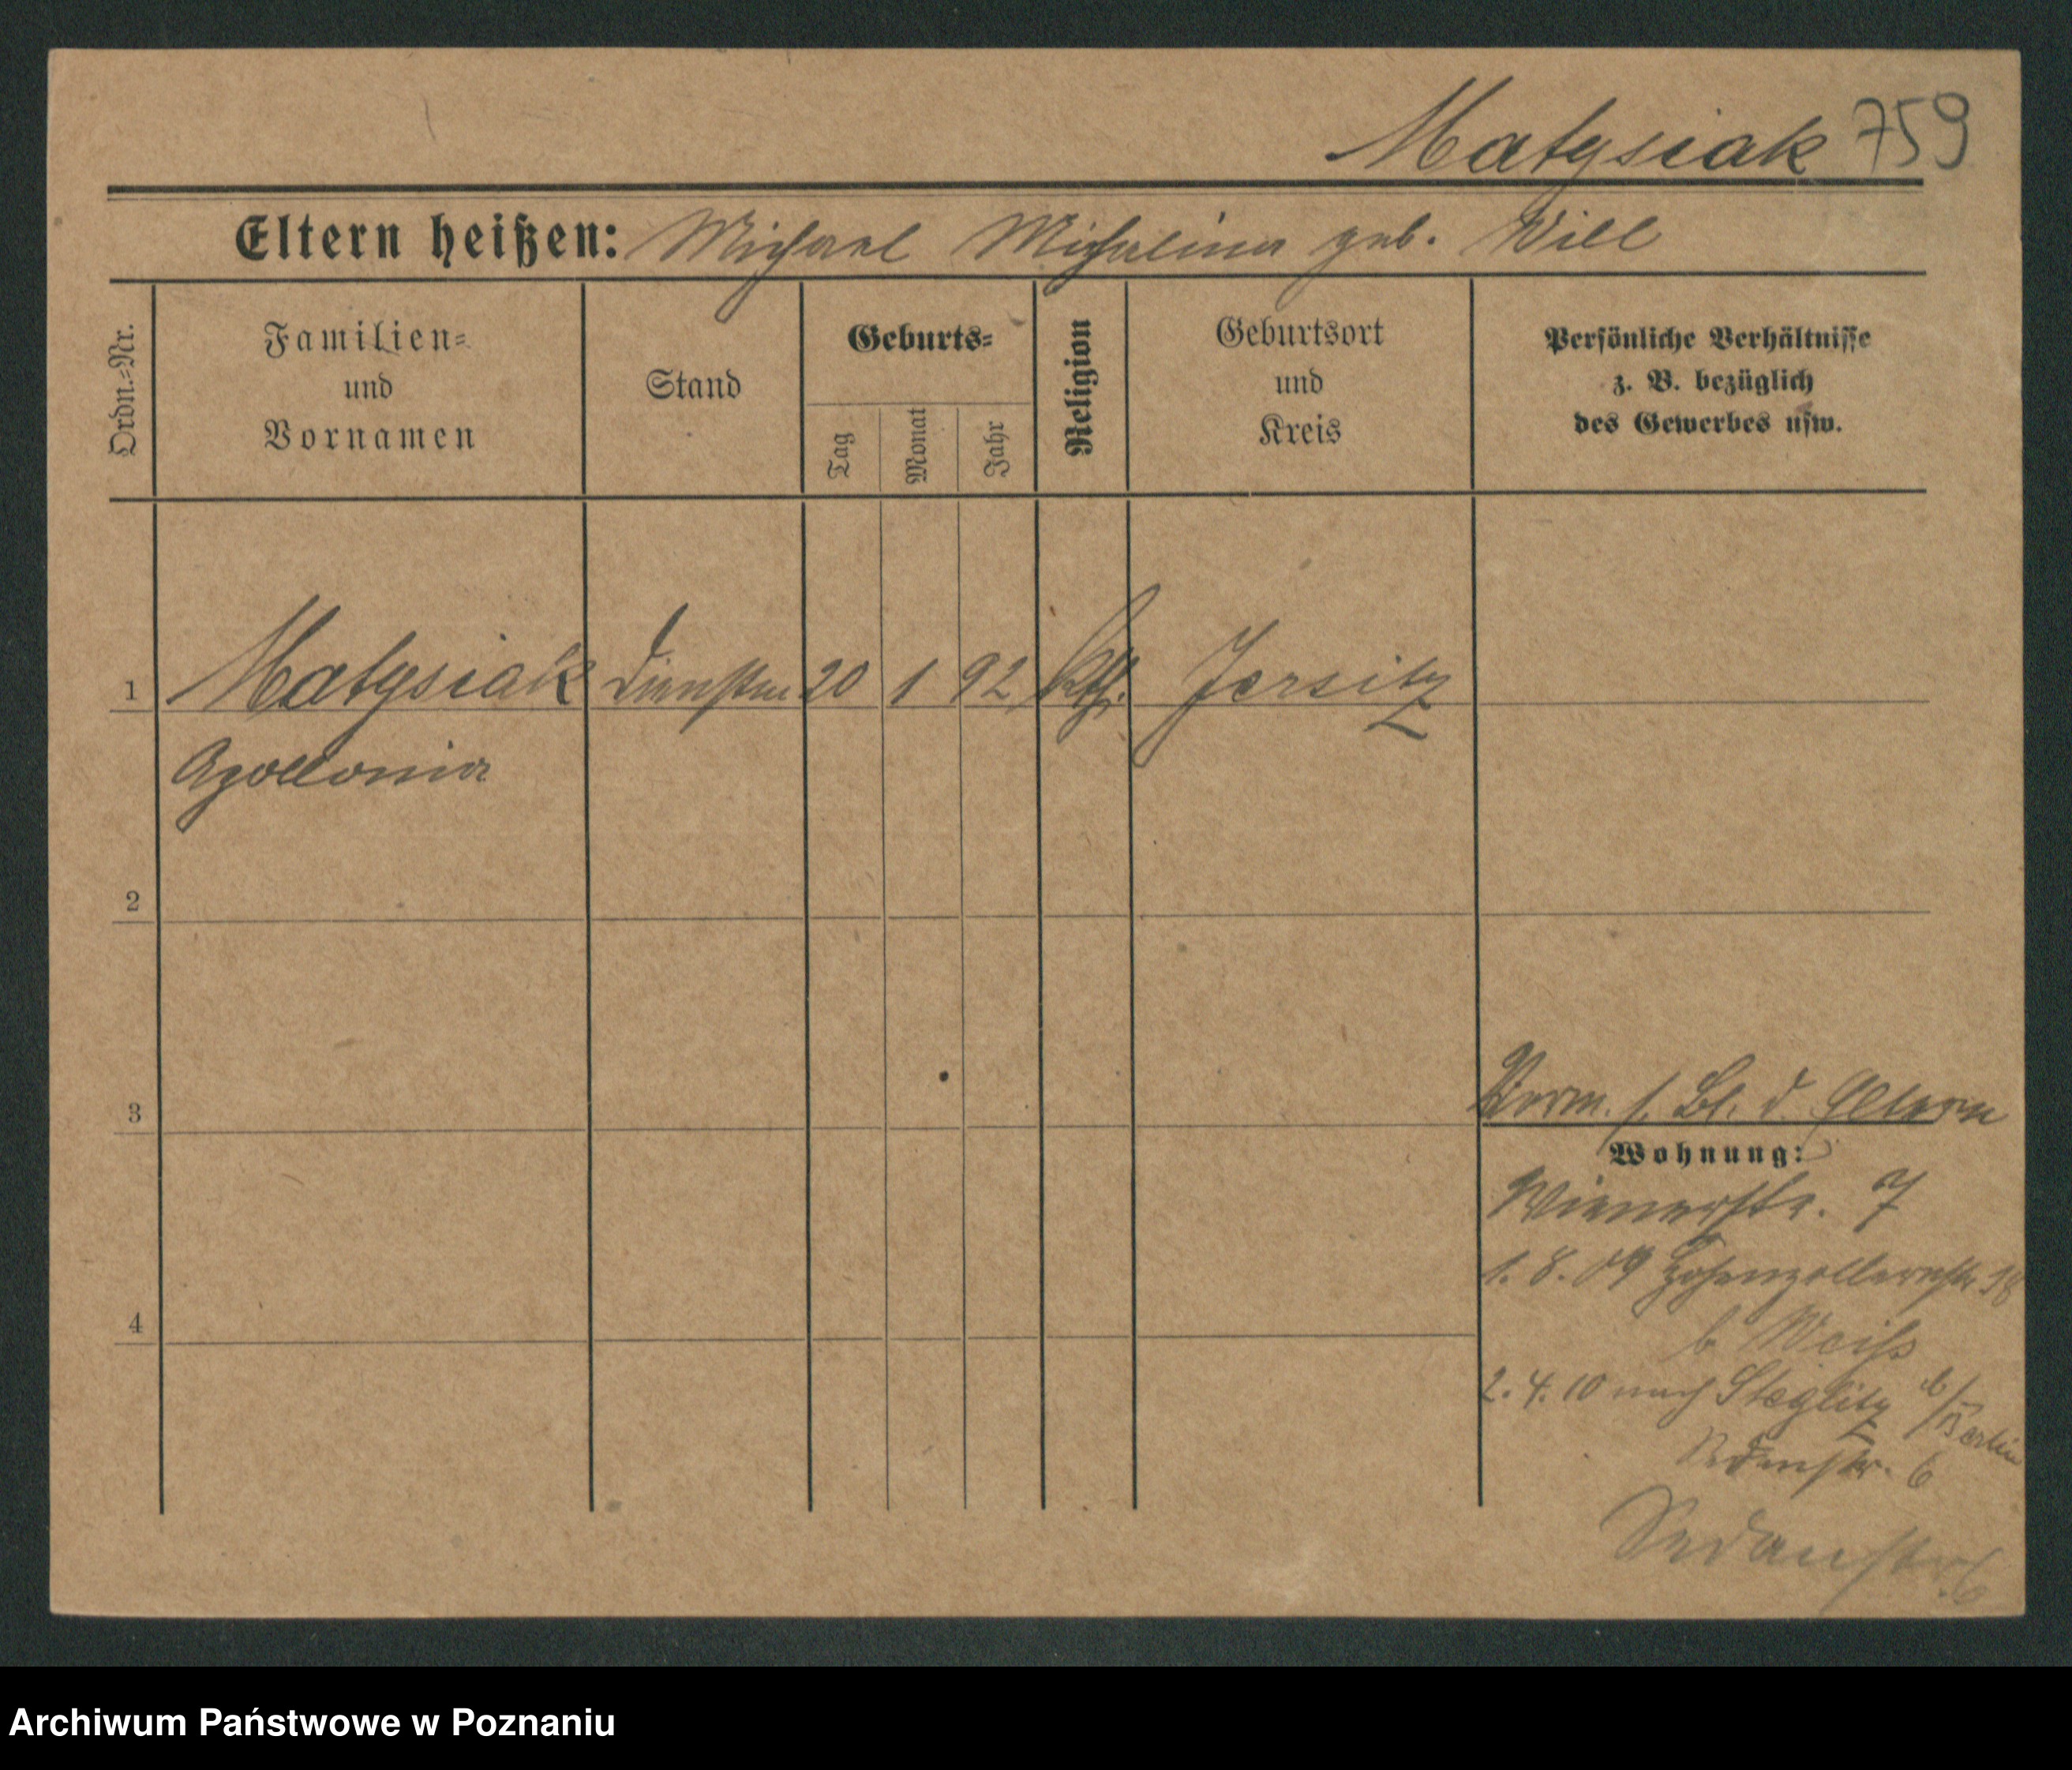 Matysiak 759
Eltern heißen: Michael Michalina geb. Will
Ordn.-Nr.
Familien-
und
Vornamen
Stand
Geburts-
Tag
Monat
Jahr
Religion
Geburtsort
und
Kreis
Persönliche Verhältnisse
z. B. bezüglich
des Gewerbes usw.
1 Matysiak 20 1 92 kth. Jersitz
Apollonia
2
3
Verm. s. Bl. d. Eltern
Wohnung:
Wienerstr. 7
1. 8. 09 Hohenzollernstr.
b Weiss
4
2. 4. 10 nach Steglitz b/Berlin
Sedanstr. 6
Sedanstr. 6
Archiwum Państwowe w Poznaniu